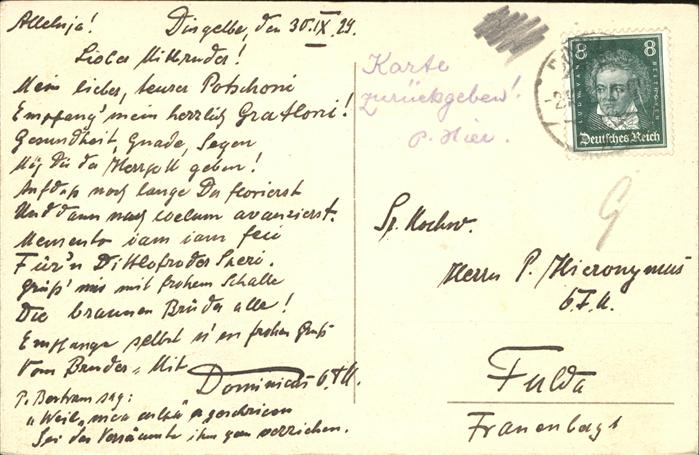 Alleluja! Dingelbe, den 30.IX.29.
Lieber Mitbruder!
Mein lieber, teurer Potschoni
Empfang' mein herzlich Gratloni!
Gesundheit, Gnade, Segen
Mög dir der Herrgott geben!
Auf daß noch lange Du florierst
Und dann nach coelum avanzierst.
Memento iam iam fei
Für'n
Grüß' mir mit frohem Schalle
Die braunen Brüder alle!
Empfange selbst n'en frohen Gruß
Vom Bruder "Mit
Dominicus O.F.M.
P. Bertram sag:
"Weil" geschrieben
Sei das Versäumte ihm gern verziehen.
Karte
zurückgeben!
P. Hier.
8 8
LUDWIG VAN BEETHOVEN
Deutsches Reich
Sr. Hochw.
Herrn P. Hieronymus
O.F.M.
Fulda
Frauenberg